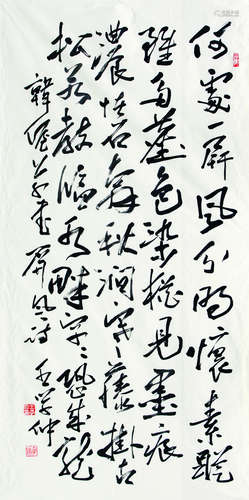 何處一屏风分明懷素蹤
雖多塵色染猶见墨痕
濃怪石奔秋澗寒藤掛古
松若教临水畔字〻恐成龍
韓偓草書屏风詩 王学仲